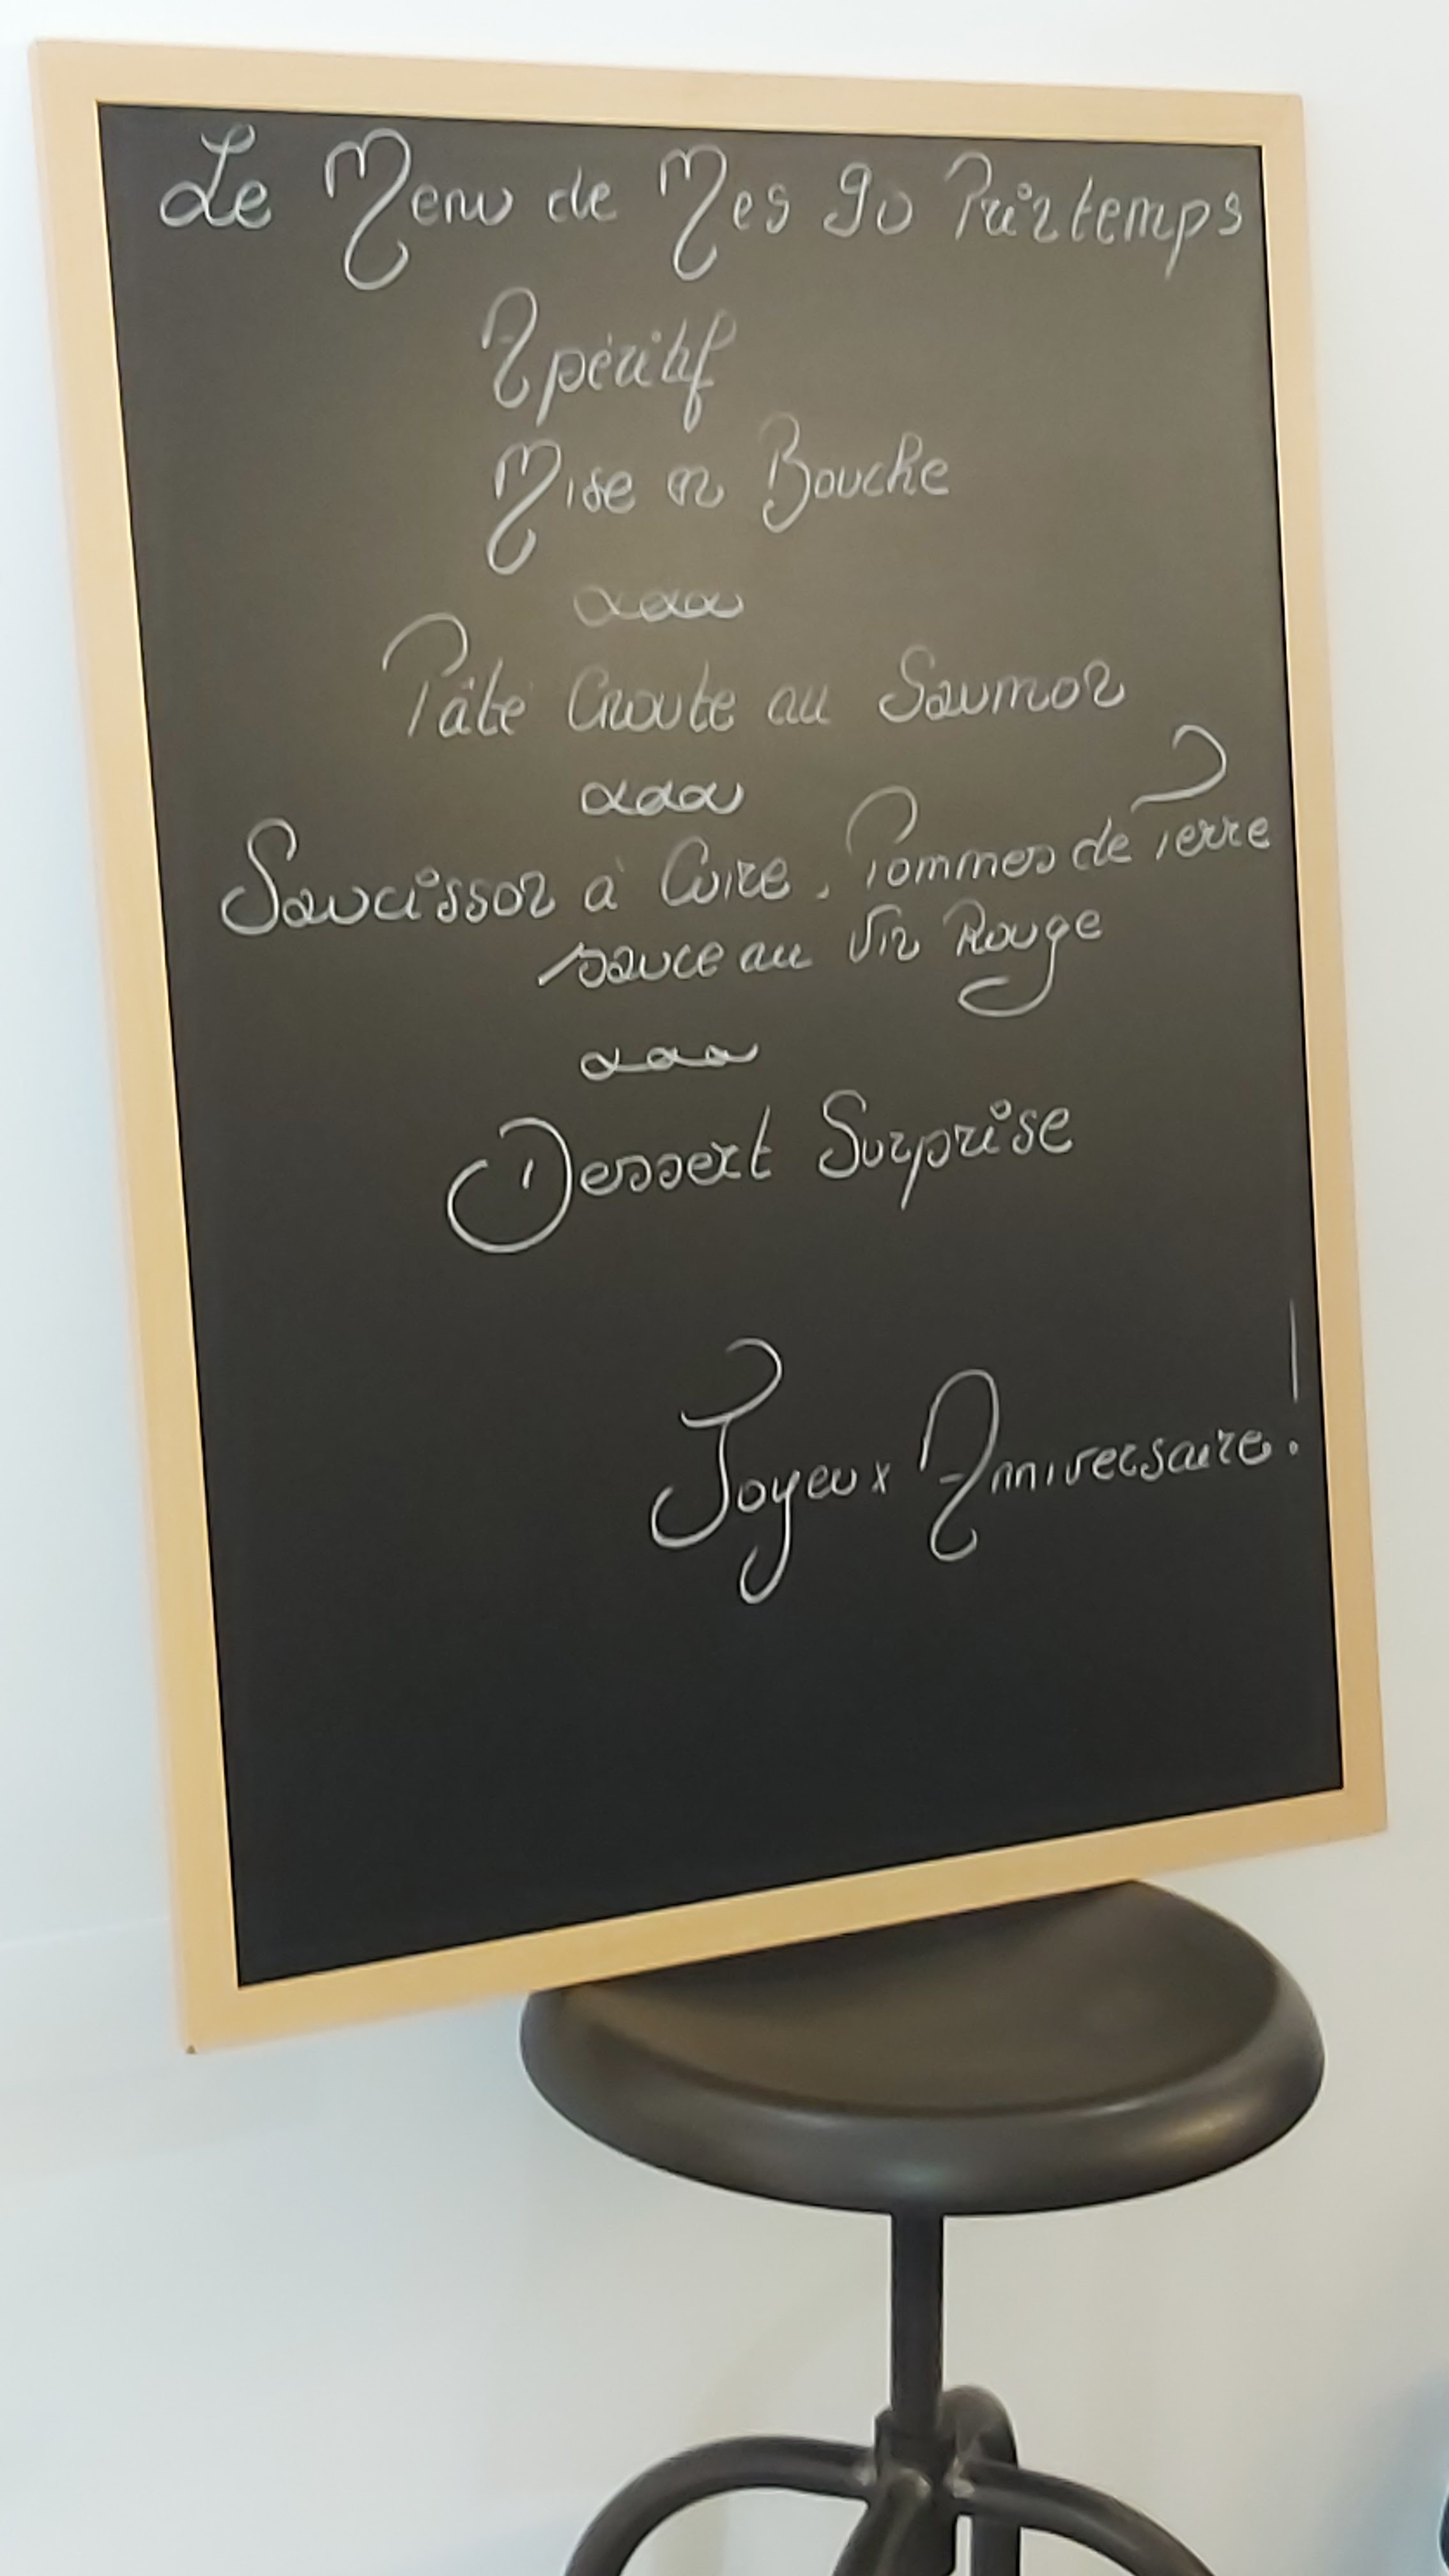 Le Menu de Mes 90 Printemps
Apéritif
Mise en Bouche
Pâté Croute au Saumon
Saucisson à Cuire, Pommes de Terre
sauce au Vin Rouge
Dessert Surprise
Joyeux Anniversaire!